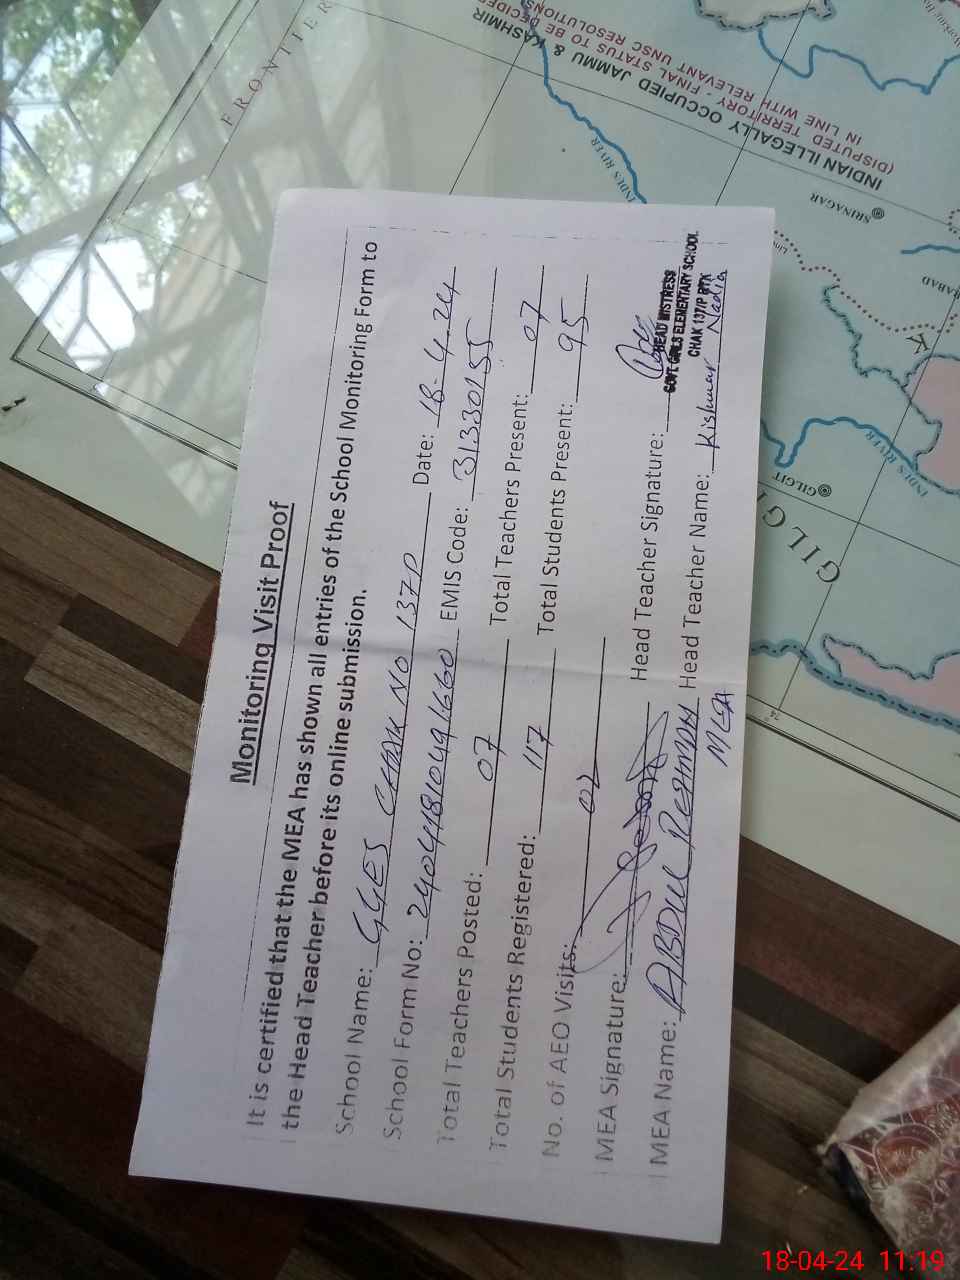 Monitoring Visit Proof
It is certified that the MEA has shown all entries of the School Monitoring Form to
the Head Teacher before its online submission.
School Name: GGES CHAK NO 137P Date: 18-4-24
School Form No: 24041810491660 EMIS Code: 31330155
Total Teachers Posted: 07 Total Teachers Present: 07
Total Students Registered: 117 Total Students Present: 95
No. of AEO Visits: 02
MEA Signature: Head Teacher Signature:
HEAD MISTRESS
GOVT. GIRLS ELEMENTARY SCHOOL
CHAK 137/P RYK
MEA Name: ABDUL REHMAN Head Teacher Name: Kishwar Nadia
MEA
FRONTIER
INDIAN ILLEGALLY OCCUPIED JAMMU & KASHMIR
(DISPUTED TERRITORY - FINAL STATUS TO BE DECIDED
IN LINE WITH RELEVANT UNSC RESOLUTIONS
INDUS RIVER
SRINAGAR
Line
ABAD
K
INDUS RIVER
GILGIT
GILG
74
18-04-24 11:19